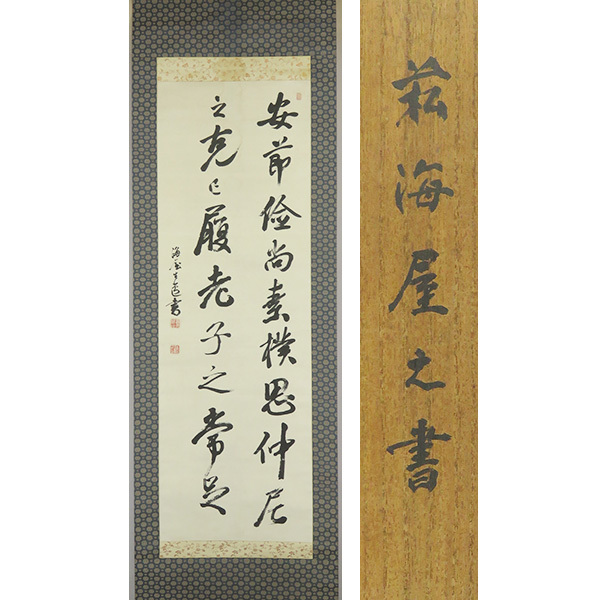 安節儉尚素樸思仲尼
之克己履老子之常足
海屋生逸書
菘海屋之書